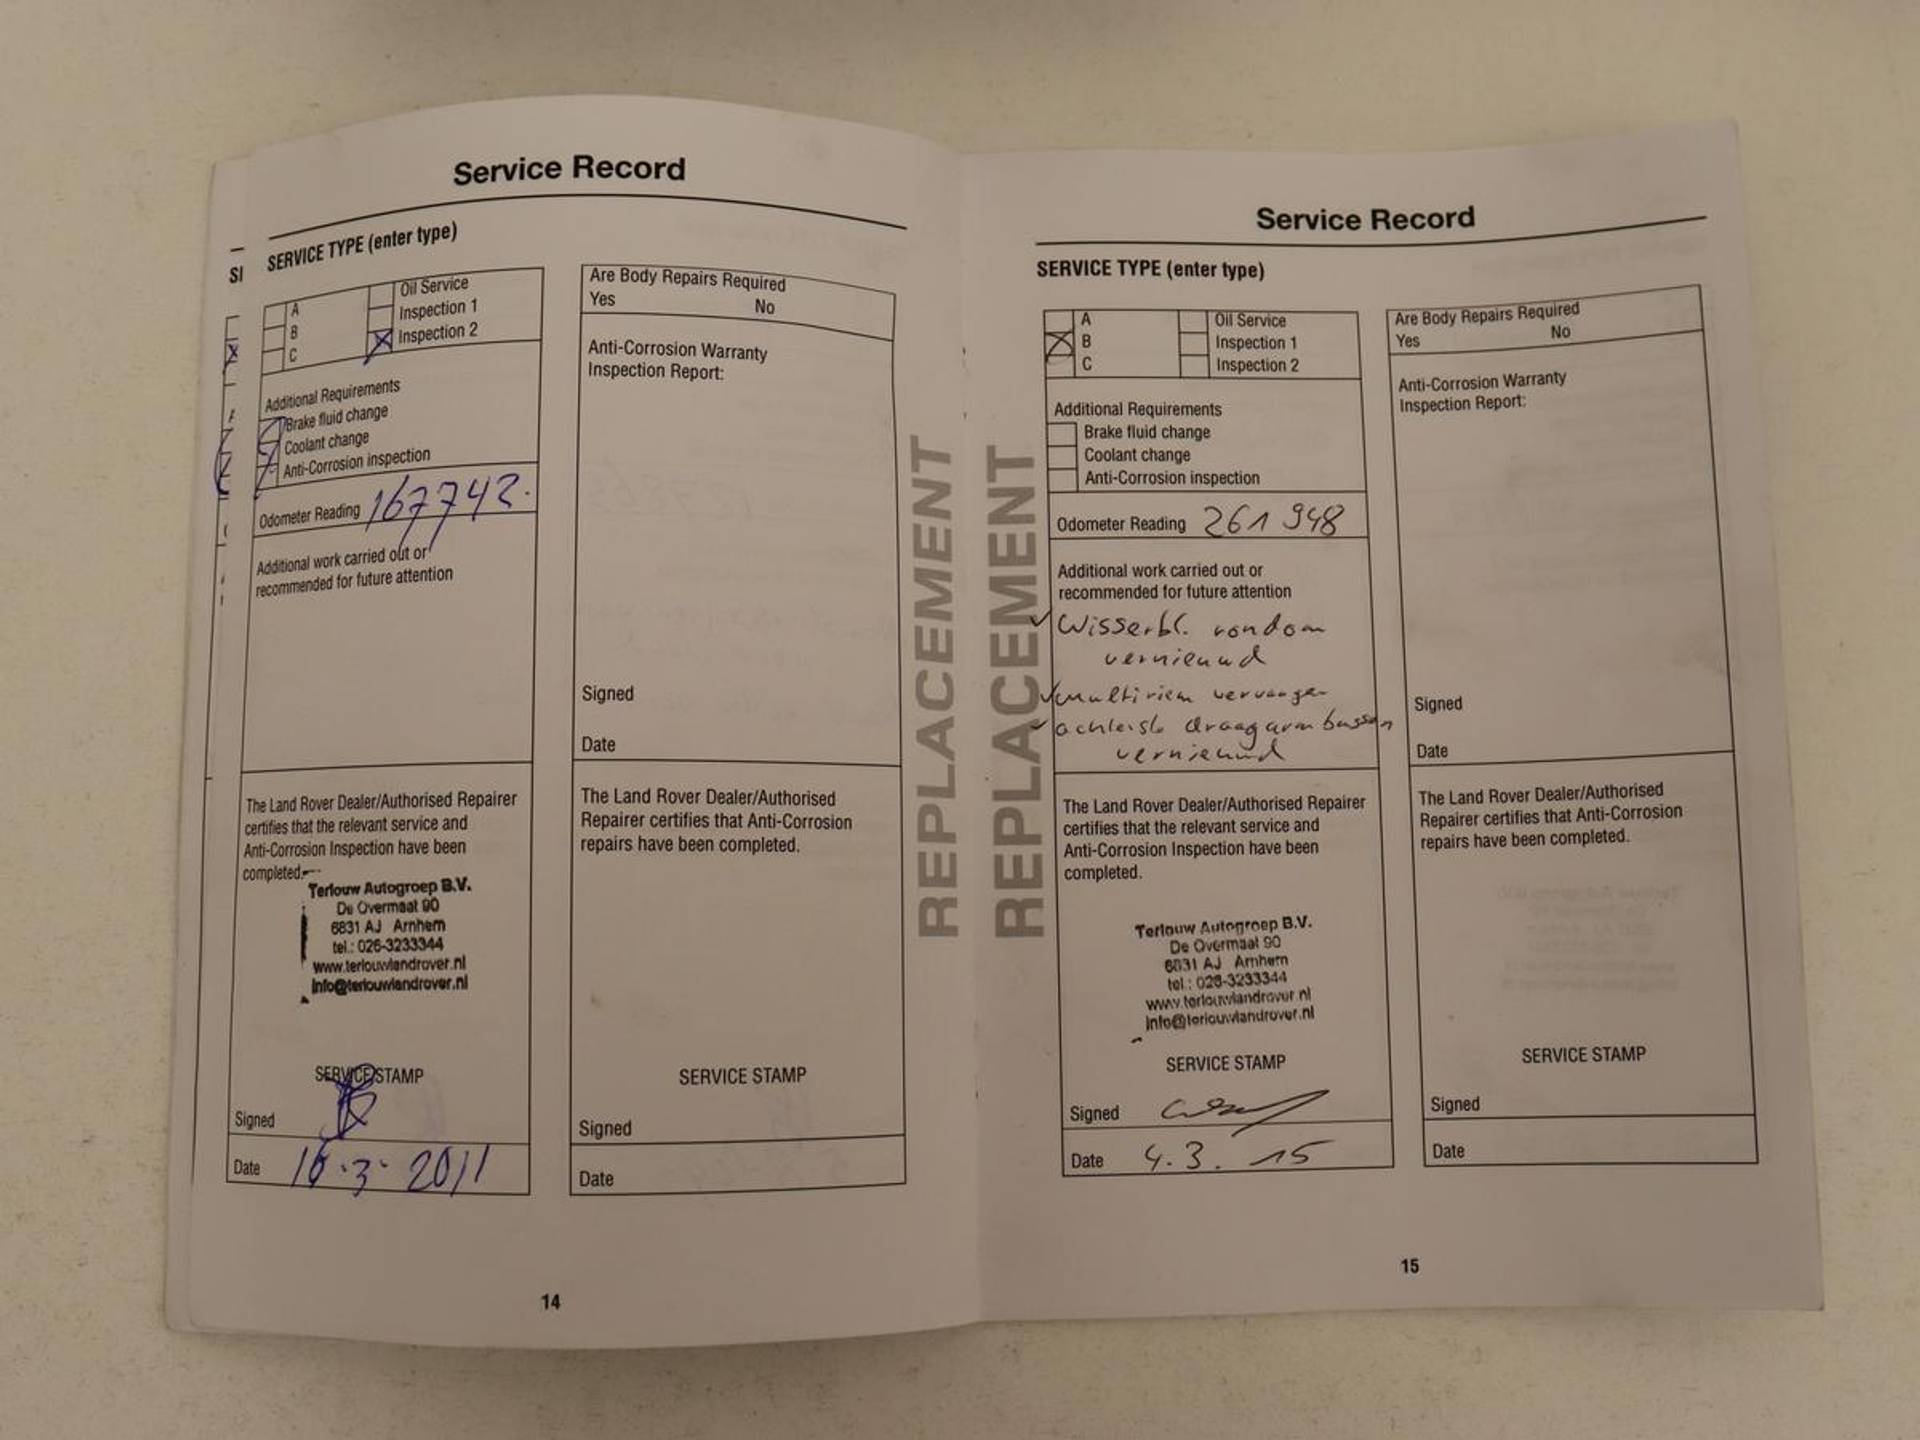 Service Record
SERVICE TYPE (enter type)
SI
A
B
C
Oil Service
Inspection 1
Inspection 2
Additional Requirements
Brake fluid change
Coolant change
Anti-Corrosion inspection
Odometer Reading 167742.
Additional work carried out or
recommended for future attention
The Land Rover Dealer/Authorised Repairer
certifies that the relevant service and
Anti-Corrosion Inspection have been
completed.
Terlouw Autogroep B.V.
De Overmaat 90
6831 AJ Arnhem
tel.: 026-3233344
www.terlouwlandrover.nl
info@terlouwlandrover.nl
SERVICE STAMP
Signed
Date 16.3.2011
Are Body Repairs Required
Yes No
Anti-Corrosion Warranty
Inspection Report:
Signed
Date
The Land Rover Dealer/Authorised
Repairer certifies that Anti-Corrosion
repairs have been completed.
SERVICE STAMP
Signed
Date
REPLACEMENT
14
REPLACEMENT
Service Record
SERVICE TYPE (enter type)
A
B
C
Oil Service
Inspection 1
Inspection 2
Additional Requirements
Brake fluid change
Coolant change
Anti-Corrosion inspection
Odometer Reading 261 948
Additional work carried out or
recommended for future attention
✓ Wisserbl. rondom
vernieuwd
✓ multiriem vervangen
✓ draagarm bussen
vernieuwd
The Land Rover Dealer/Authorised Repairer
certifies that the relevant service and
Anti-Corrosion Inspection have been
completed.
Terlouw Autogroep B.V.
De Overmaat 90
6831 AJ Arnhem
tel.: 026-3233344
www.terlouwlandrover.nl
info@terlouwlandrover.nl
SERVICE STAMP
Signed
Date 4.3.15
Are Body Repairs Required
Yes No
Anti-Corrosion Warranty
Inspection Report:
Signed
Date
The Land Rover Dealer/Authorised
Repairer certifies that Anti-Corrosion
repairs have been completed.
SERVICE STAMP
Signed
Date
15